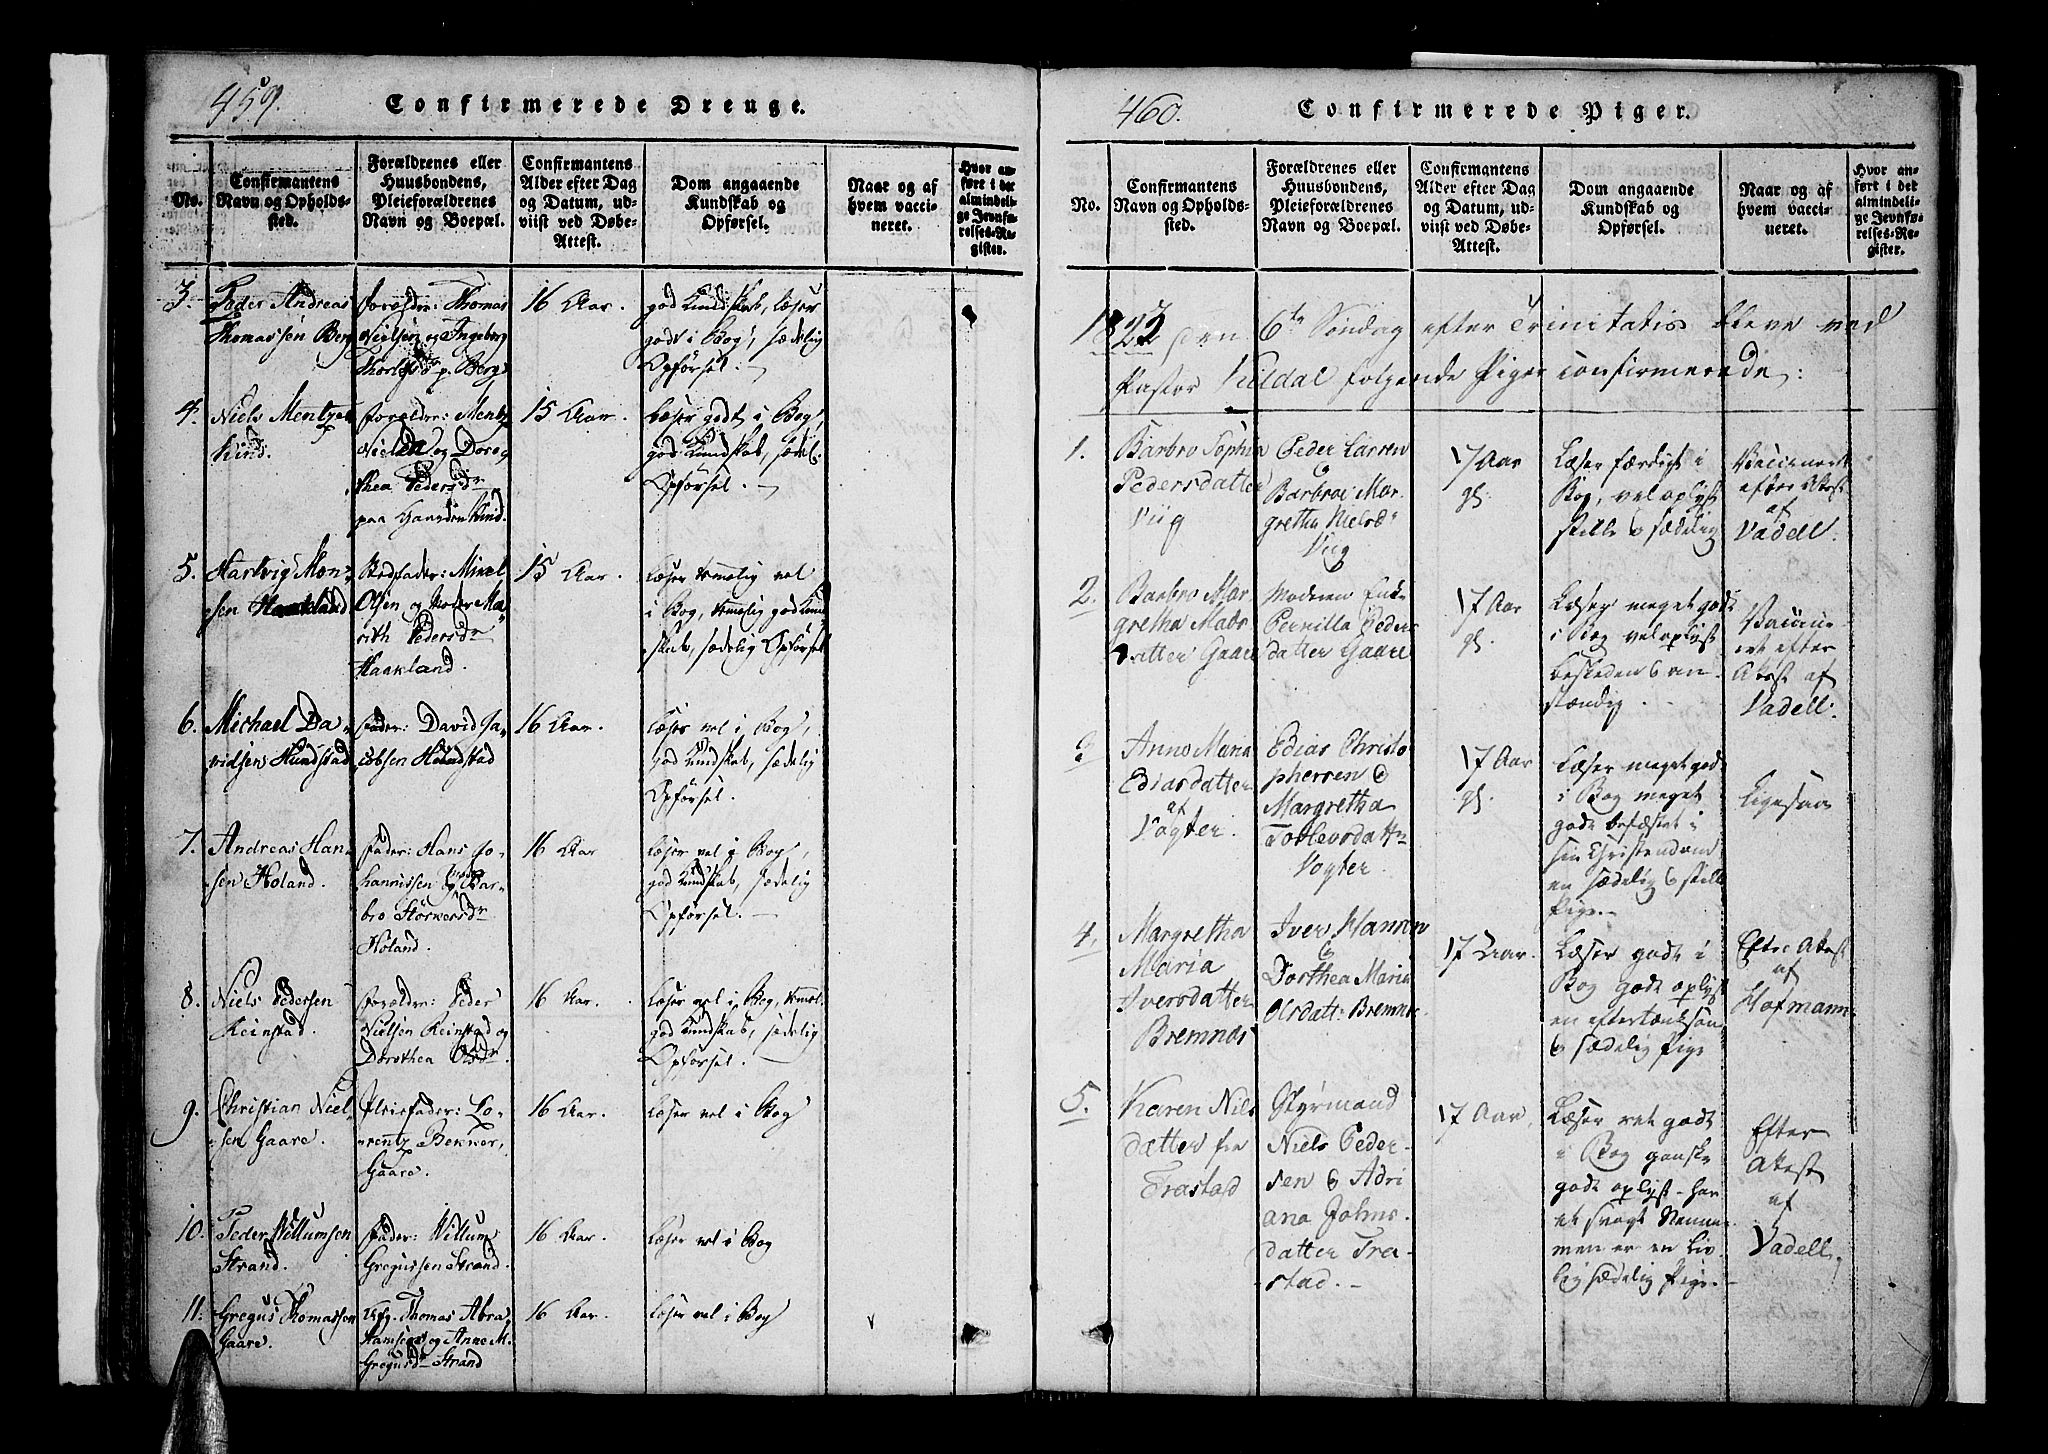 459.
Confirmerede Drenge.
No.
Confirmantens
Navn og Opholds-
sted.
Forældrenes eller
Huusbondens,
Pleieforældrenes
Navn og Boepæl.
Confirmantens
Alder efter Dag
og Datum, ud-
viist ved Døbe-
Attest.
Dom angaaende
Kundskab og
Opførsel.
Naar og af
hvem vacci-
neret.
Hvor an-
ført i det
almindeli-
ge Jevnfø-
relses-Re-
gister.
3.
Peder Andreas
Thomassen Berg
Forældre: Thomas
Nielsen og Ingeborg
p. Berg
16 Aar.
god Kundskab, læser
godt i Bog, sædelig
Opførsel.
4.
Niels Mentzen
Kind.
Forældre: Mentz
Nielsen og Doro-
thea Pedersdr
paa Gaarden Kind.
15 Aar.
læser godt i Bog,
god Kundskab, sædel.
Opførsel.
5.
Hartvig Mon-
sen Haakland
Stedfader: Mikel
Olsen og Moder Ma-
rith Pedersdr
Haakland.
15 Aar.
læser temmelig vel
i Bog, temmelig god Kund-
skab, sædelig Opførsel
6.
Michael Da-
vidsen Hundstad
Fader: David Ja-
cobsen Hundstad
16 Aar.
læser vel i Bog,
god Kundskab, sædelig
Opførsel.
7.
Andreas Han-
sen Holand.
Fader: Hans Jo-
hannissen og Bar-
bro Störkersdr
Holand.
16 Aar
læser vel i Bog,
god Kundskab, sædelig
Opførsel.
8.
Niels Pedersen
Reinstad.
Forældre: Peder
Nielsen Reinstad og
Dorothea Olsdr.
16 Aar.
læser vel i Bog, temmel.
god Kundskab, sædelig
Opførsel.
9.
Christian Niel-
sen Gaare.
Pleiefader: Lo-
rentz Benner,
Gaare.
16 Aar.
læser vel i Bog
10.
Peder Willumsen
Strand.
Fader: Willum
Gregussen Strand.
16 Aar.
læser vel i Bog
11.
Gregus Thomassen
Gaare.
Thomas Abra-
hamsen og Anne M.
Gregusdr Strand
16 Aar.
læser vel i Bog
460.
Confirmerede Piger.
No.
Confirmantens
Navn og Opholds-
sted.
Forældrenes eller
Huusbondens,
Pleieforældrenes
Navn og Boepæl.
Confirmantens
Alder efter Dag
og Datum, ud-
viist ved Døbe-
Attest.
Dom angaaende
Kundskab og
Opførsel.
Naar og af
hvem vacci-
neret.
Hvor an-
ført i det
almindeli-
ge Jevnfø-
relses-Re-
gister.
den 6te Søndag efter Trinitatis bleve ved
Pastor Kildal følgende Piger confirmerede:
1.
Barbro Sophia
Pedersdatter
Viig
Peder Larsen
&
Barbroe Mar-
gretha Nielsdr
Viig
17 Aar
gl.
Læser færdigt i
Bog, vel oplyst
stille & sædelig
Vaccineret
efter Attest
af
Vadell.
2.
Barbro Mar-
gretha Mads-
datter Gaare
Moderen Enke
Pernilla Peders-
datter Gaare
17 Aar
gl.
Læser meget godt
i Bog vel oplyst
beskeden & an-
stændig.
Vaccine-
ret efter
Attest af
Vadell.
3
Anne Maria
Ediasdatter
af
Vogter.
Edias Christo-
phersen &
Margretha
Tollevsdattr
Vogter.
17 Aar
gl.
Læser meget godt
i Bog meget
godt befæstet i
sin Christendom
en sædelig & stille
Pige.
Ligesaa
4.
Margretha
Maria
Iversdatter
Bremnæs
Iver Hansen
&
Dorthea Maria
Olsdatt: Bremnæs
17 Aar.
Læser godt i
Bog godt oplyst
en eftertænksom
& sædelig Pige
Efter Attest
af
Hofmann
5.
Karen Niels-
datter fra
Trastad
Styrmand
Niels Peder-
sen & Adri-
ana Johns-
datter Tra-
stad.
17 Aar.
Læser ret godt
i Bog ganske
godt oplyst - har
et svagt Nemme
men er en liv-
lig sædelig Pige.
Efter
Attest
af
Vadell.